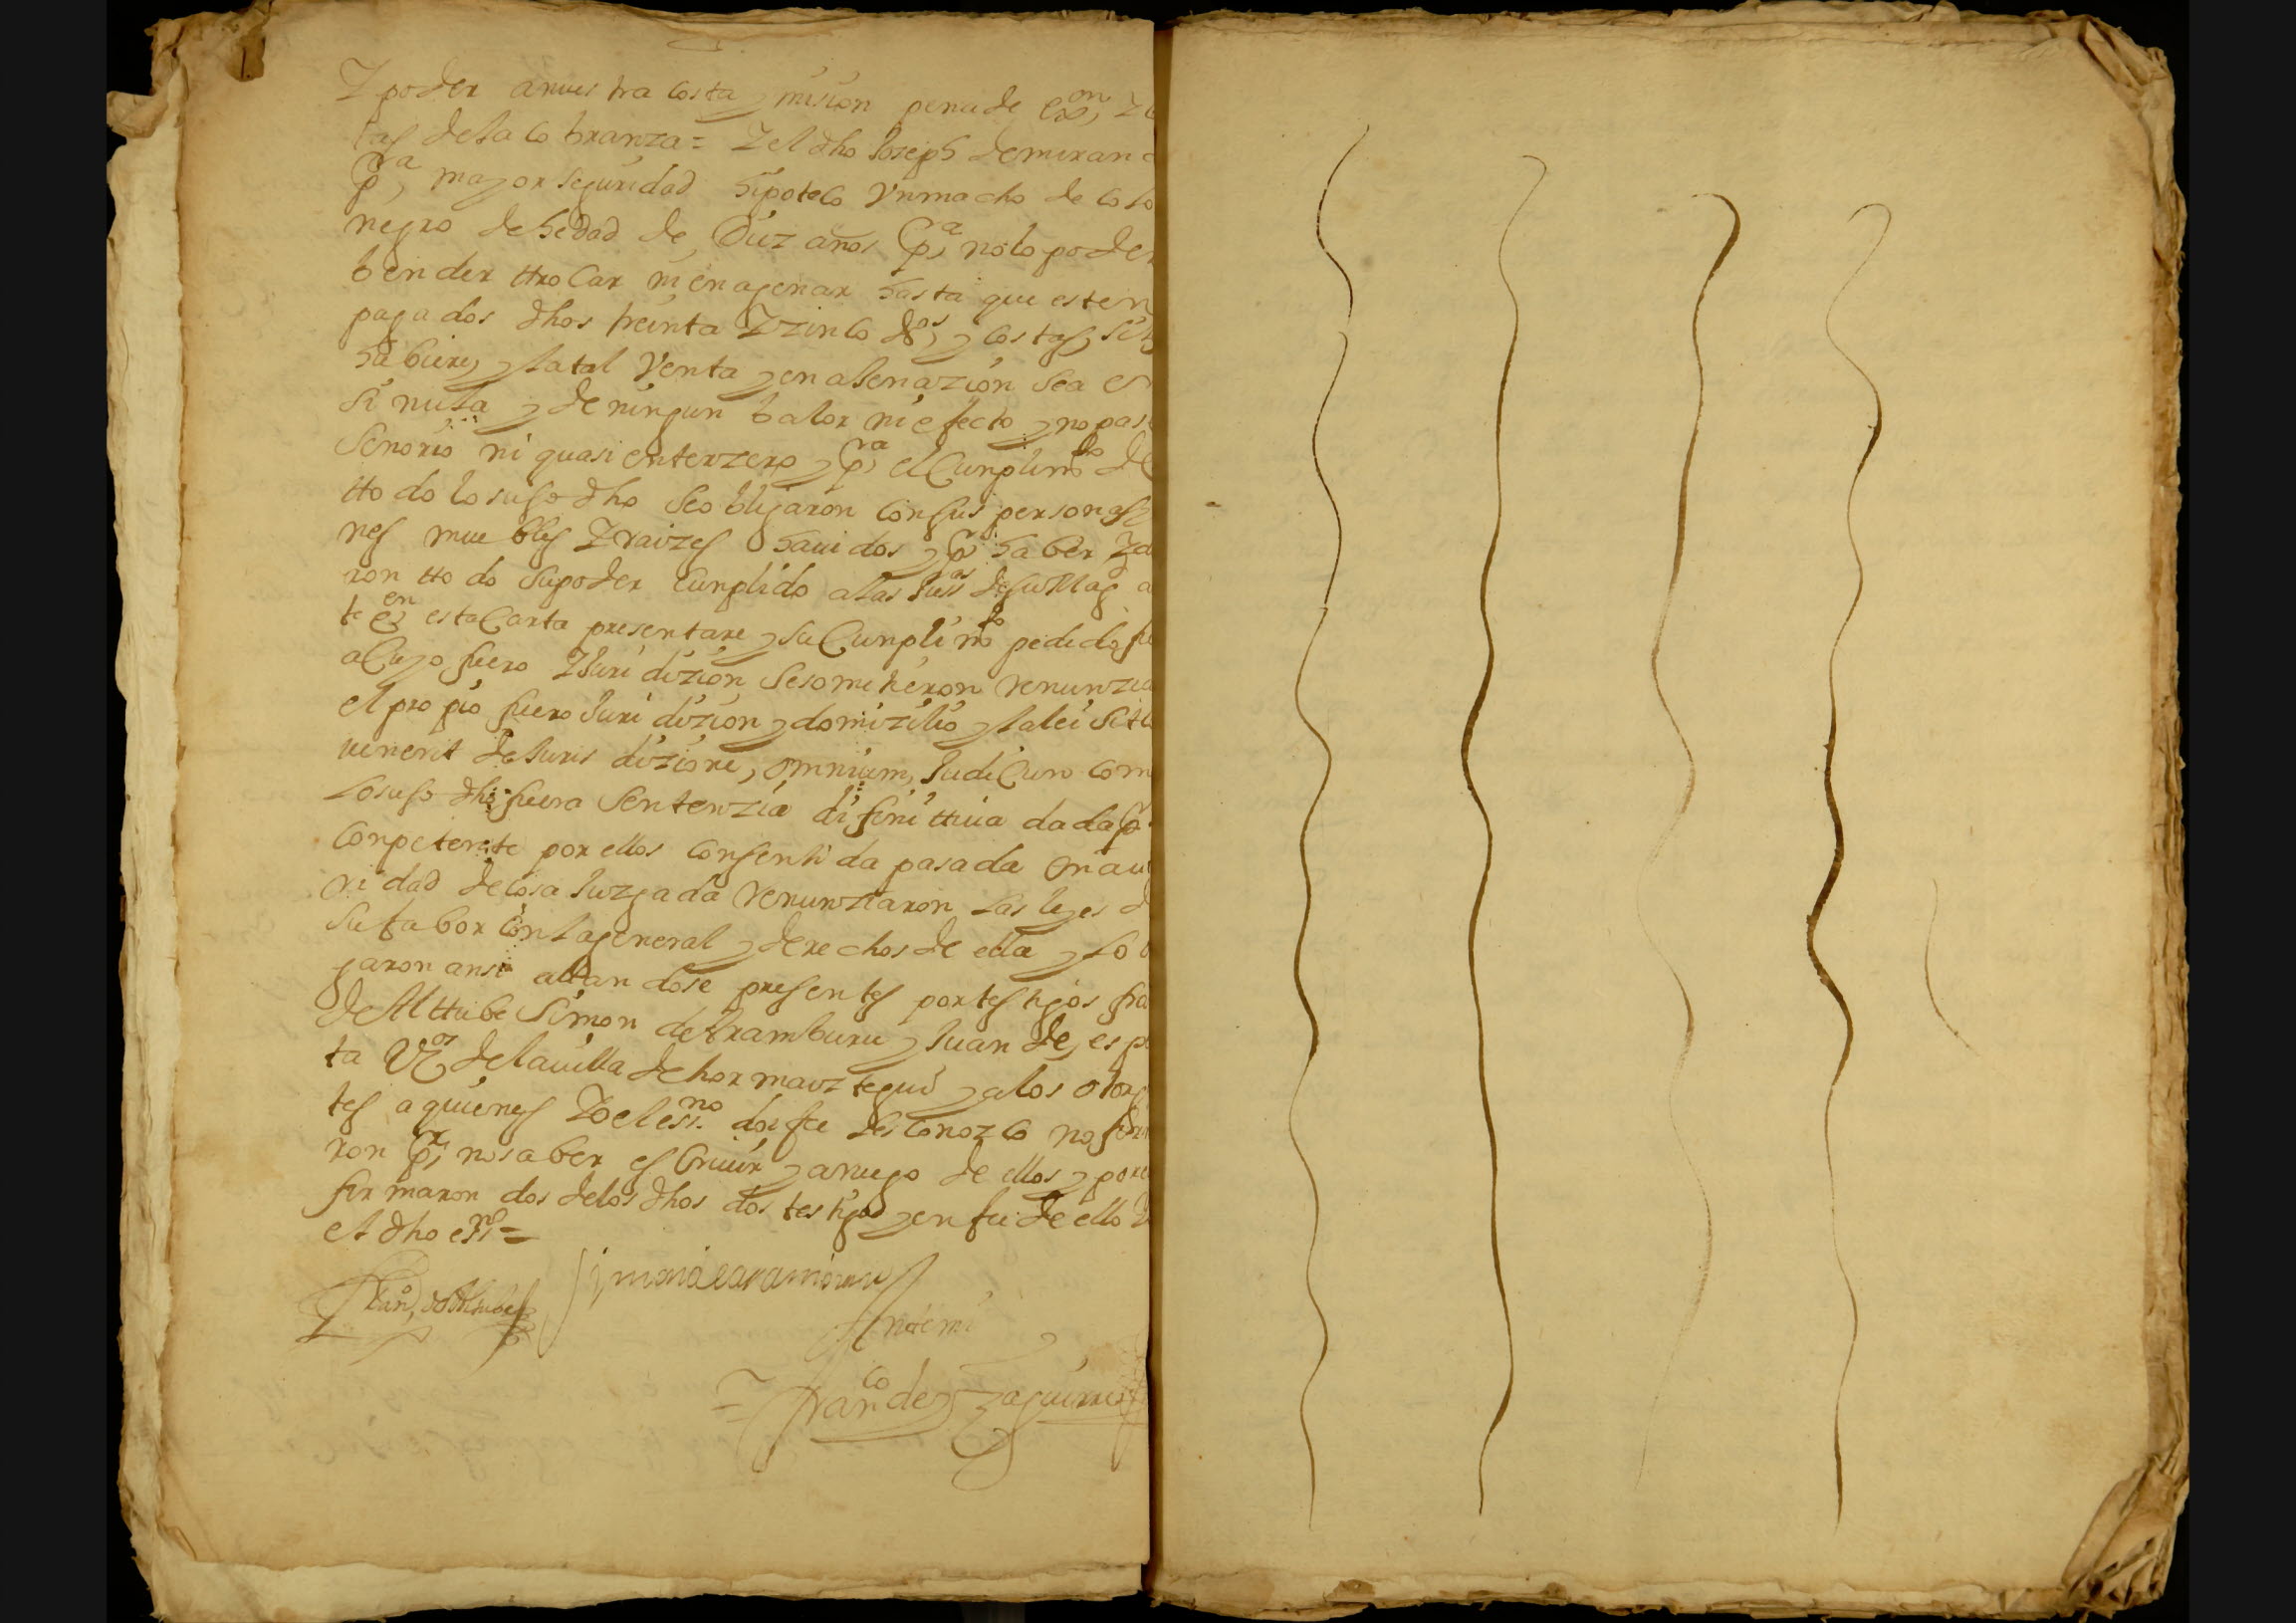 Y poder a nuestra costa y mision pena de exon, y co
tas de la cobranza = Y el dho Joseph de miran
pa, mayor seguridad hipoteco Vn macho de colo
negro de hedad de diez años pa, no lo poder
bender ttrocar ni enagenar hasta que esten
pagados dhos treinta y zinco ds, y costas si las
hubiere, y la tal Venta y enalienazion sea en
si nula y de ningun balor ni efecto y no pase
Señorio ni quasi en terzero y pra el Cunplimto de
ttodo lo suso dho se obligaron con sus personas
nes muebles Y raizes hauidos y pr haber Y d
ron ttodo su poder Cunplido a las Juss de su Mag a
te en esta Carta presentare y su Cunplimto pedido fu
a Cuyo fuero Y Juridizion se sometieron renunzia
el propio fuero Juridizion y domizilio y la lei Sit co
uenerit de Juris dizione, omnium, JudiCun com
lo suso dho fuera Sentenzia difinittiua dada p
Conpetente por ellos consentida pasada en au
ridad de cosa Juzgada renunziaron las leyes d
su fabor con la general y derechos de ella y lo o
garon ansi allandose presentes por testigos fra
de Alttube Simon de Aramburu y Juan de, esp
ta Vos de la uilla de hormaiztegui y a los otorg
tes a quienes Yo el essno doi fee les conozco no firm
ron pr, no saber escriuir y a ruego de ellos y por
firmaron dos de los dhos dos testigos y en fee de ello Y
el dho essno =
Franco de Alttube Simon de aramburu
Ante mi
= Franco de Yzaguirre